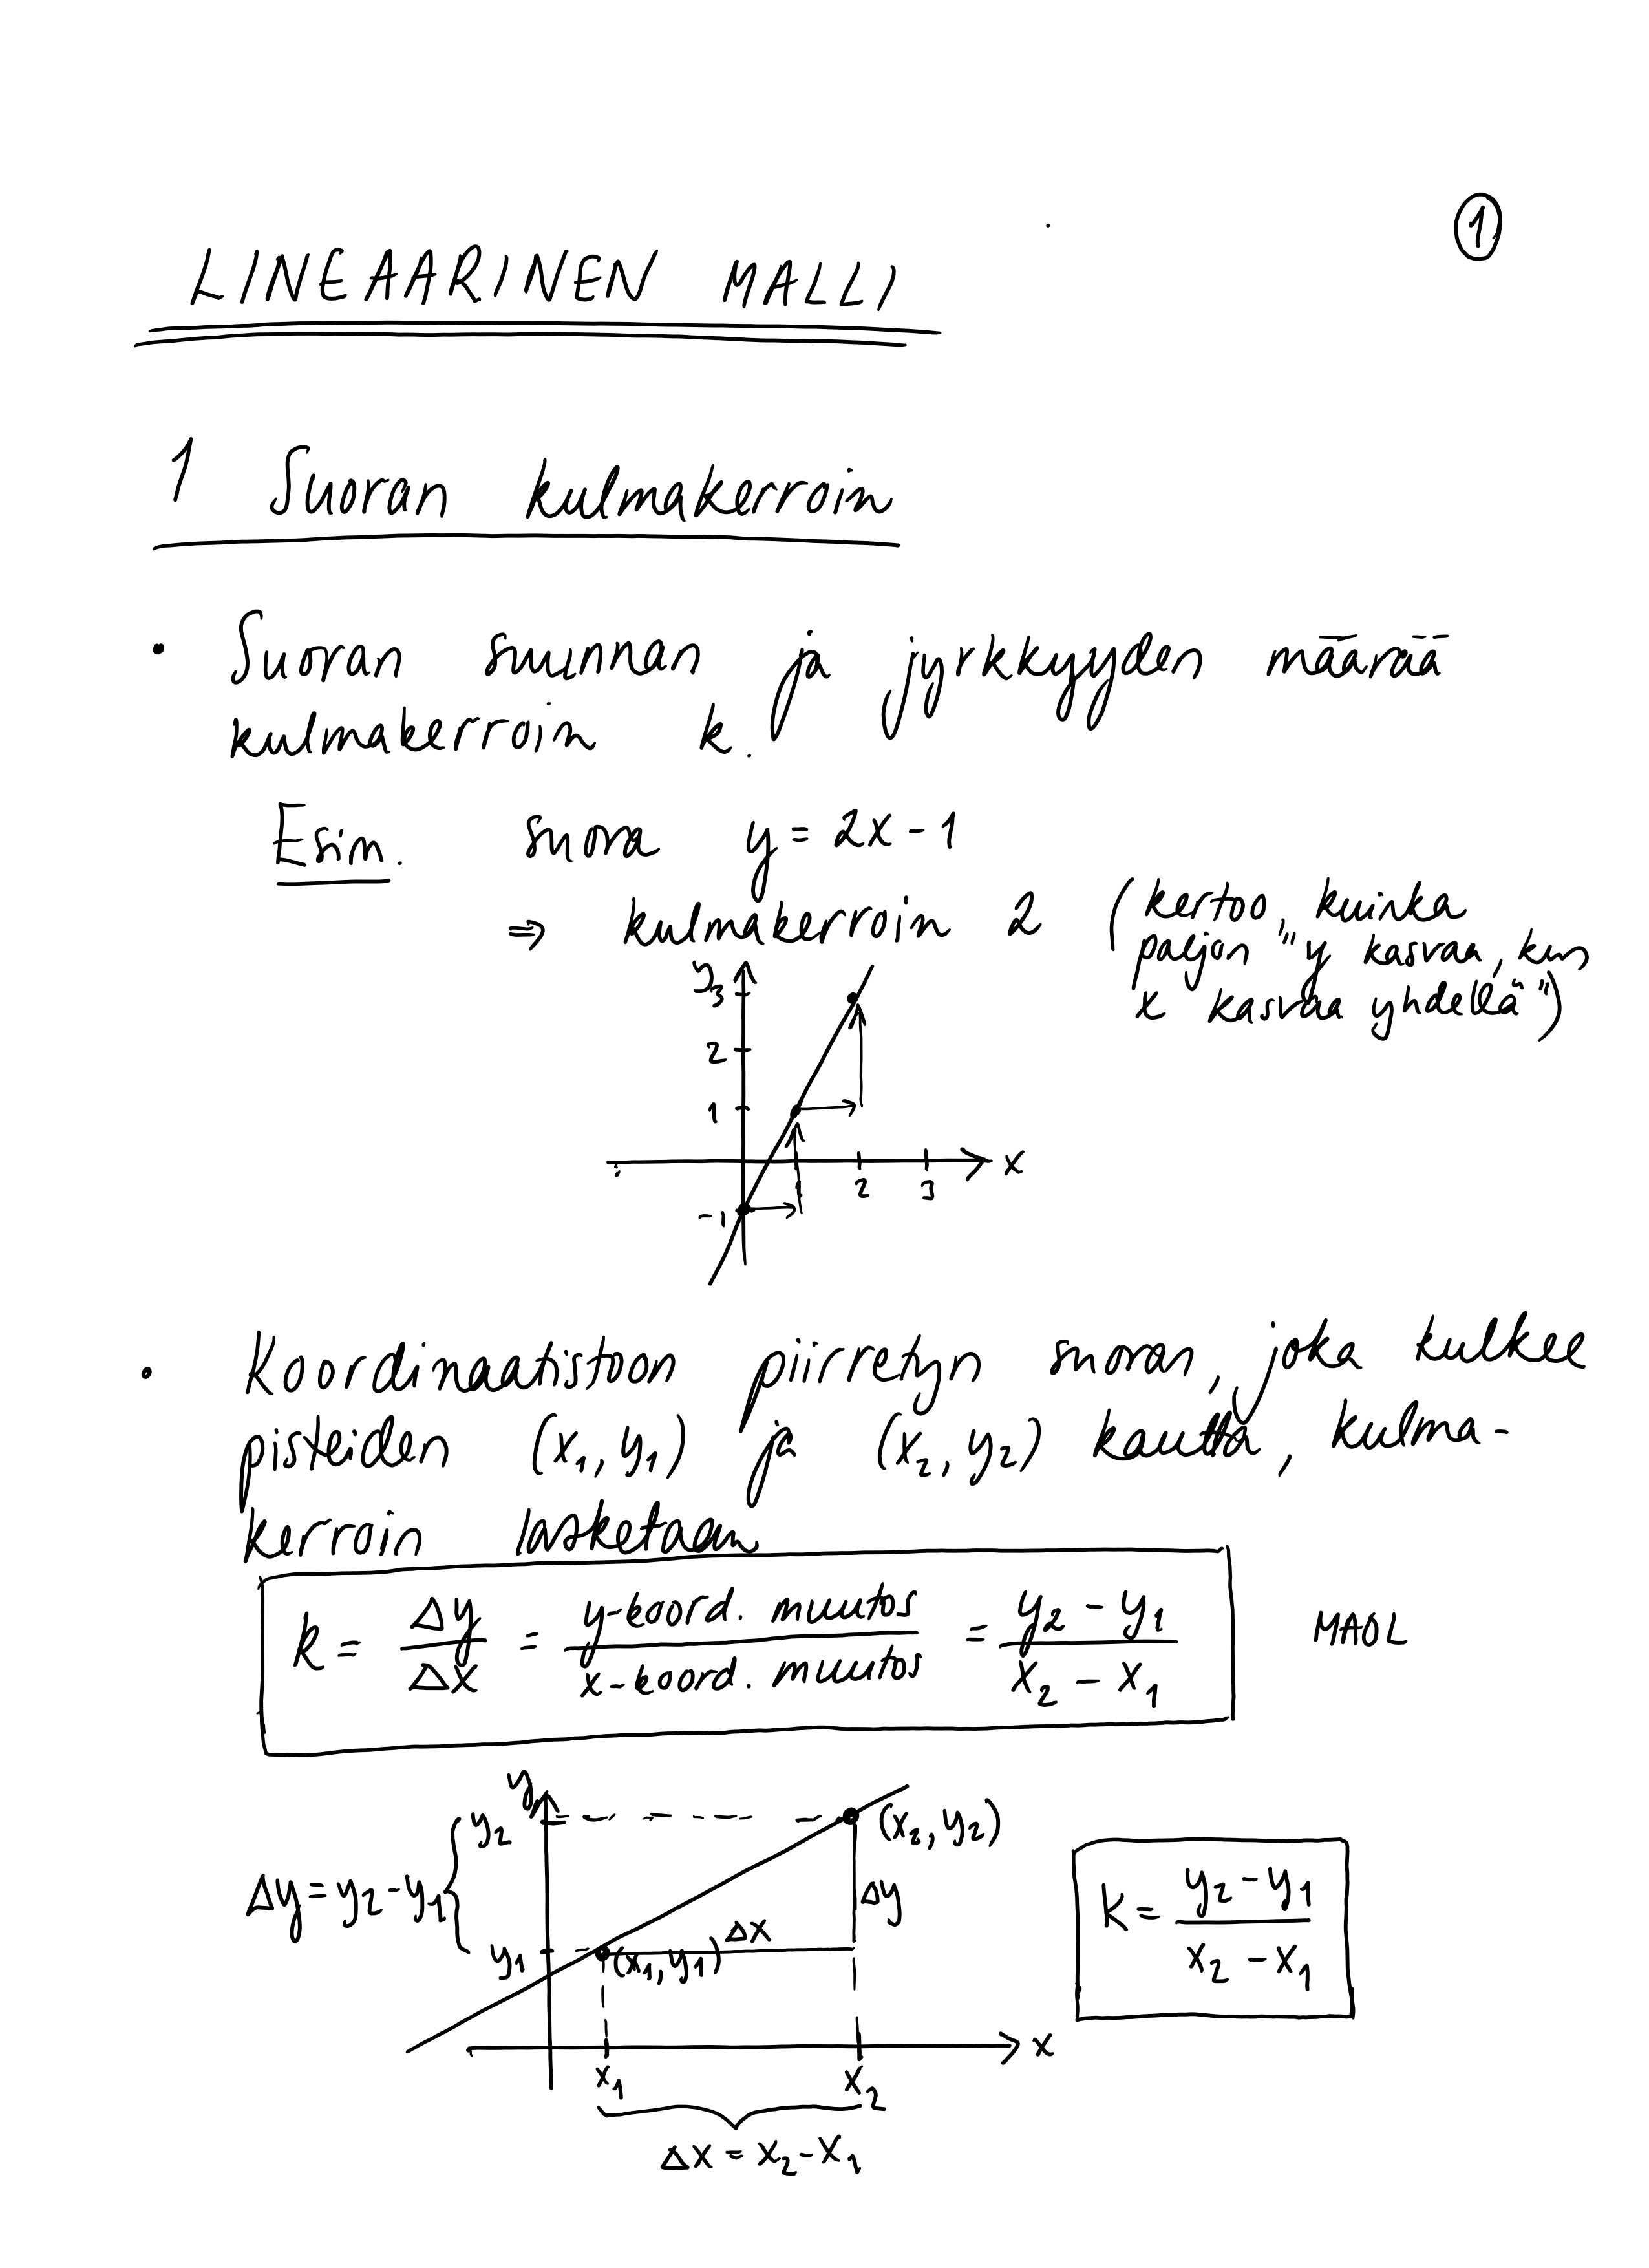 1
LINEAARINEN MALLI
1 Suoran kulmakerroin
• Suoran suunnan ja jyrkkyyden määrää
kulmakerroin k.
Esim. suora y = 2x - 1
⇒ kulmakerroin 2 (kertoo, kuinka
paljon "y kasvaa, kun
x kasvaa yhdellä")
y
3
2
1
x
1 2 3
-1
• Koordinaatistoon piirretyn suoran, joka kulkee
pisteiden (x₁, y₁) ja (x₂, y₂) kautta, kulma-
kerroin lasketaan
k = Δy/Δx = y-koord. muutos/x-koord. muutos = (y₂ - y₁)/(x₂ - x₁) MAOL
y
y₂ (x₂, y₂)
Δy = y₂ - y₁ Δy
k = (y₂ - y₁)/(x₂ - x₁)
Δx
y₁ (x₁, y₁)
x
x₁ x₂
Δx = x₂ - x₁